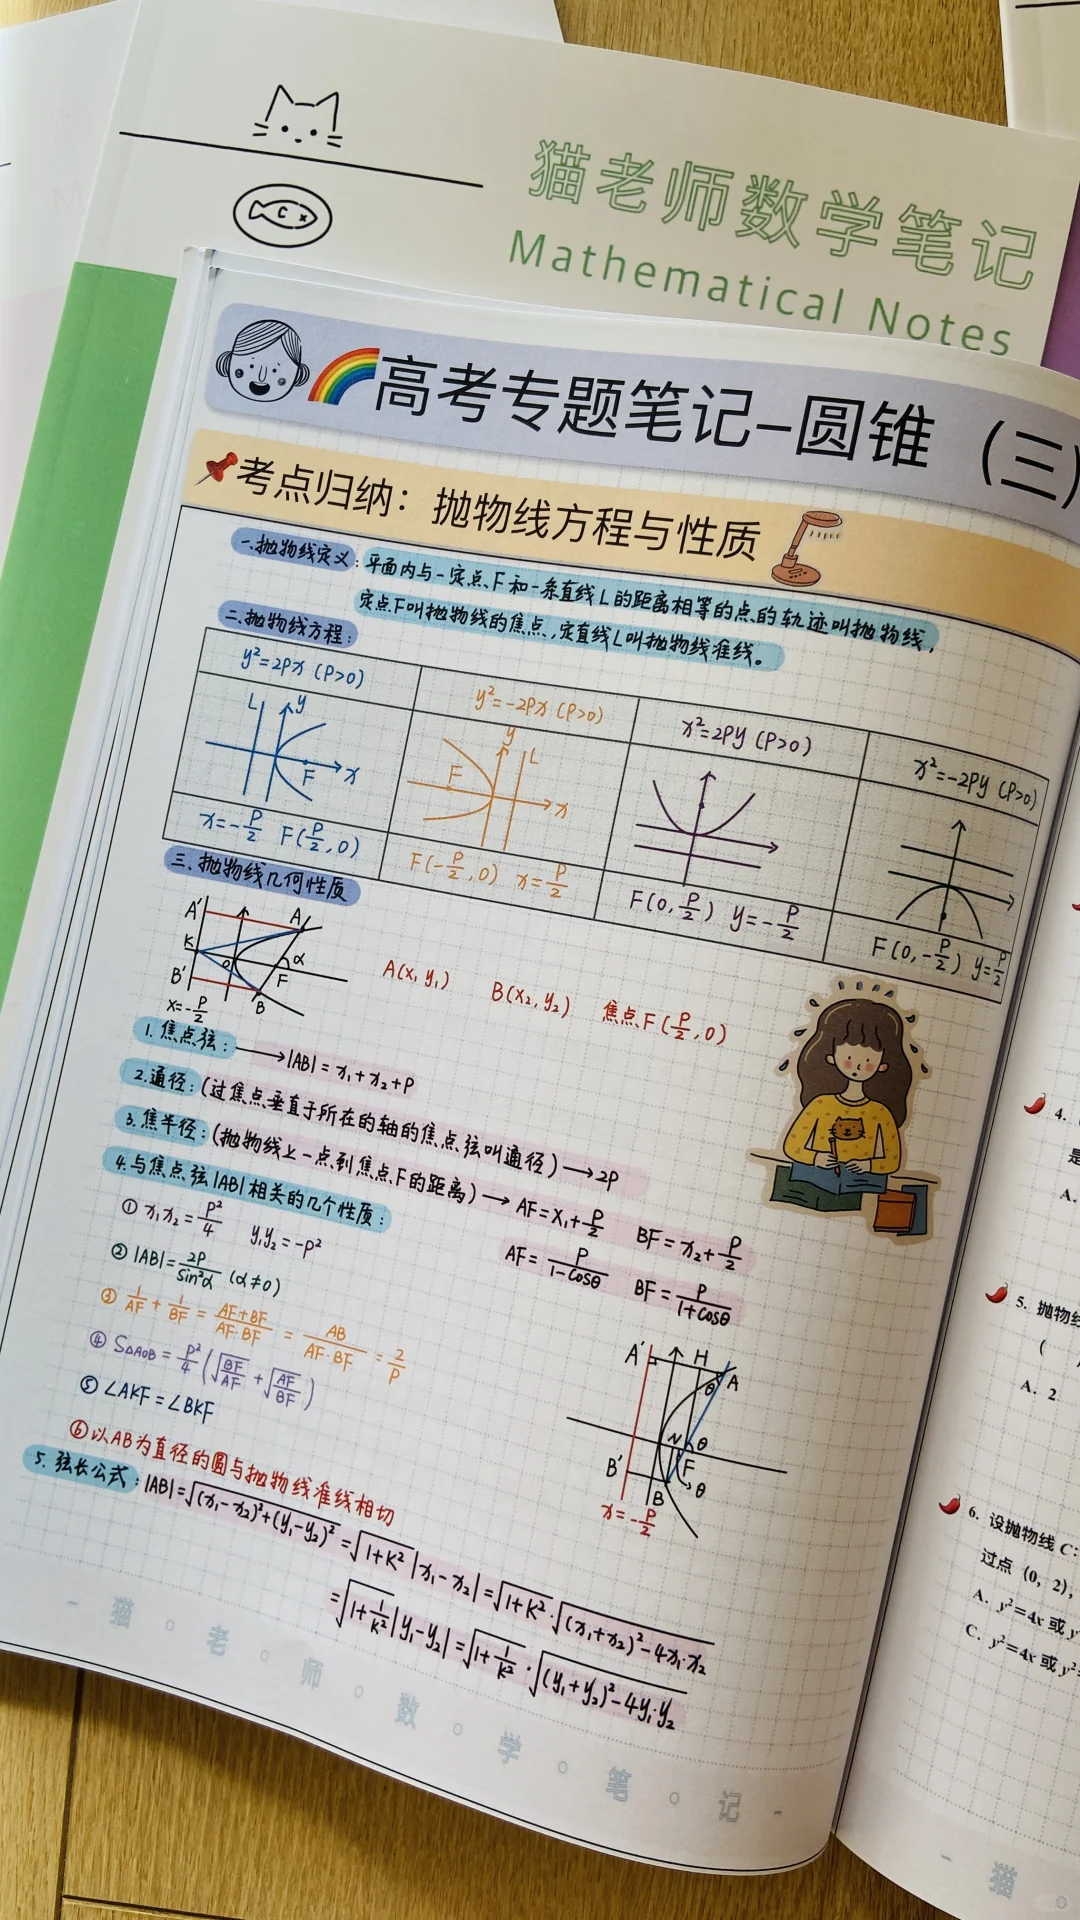 猫老师数学笔记
Mathematical Notes
高考专题笔记-圆锥（三）
考点归纳：抛物线方程与性质
一.抛物线定义：平面内与一定点F和一条直线L的距离相等的点的轨迹叫抛物线，
定点F叫抛物线的焦点，定直线L叫抛物线准线。
二.抛物线方程：
y²=2Px (P>0)
y²=-2Px (P>0)
x²=2Py (P>0)
x²=-2Py (P>0)
L y F x
F y L x
x=-P/2 F(P/2,0)
F(-P/2,0) x=P/2
F(0,P/2) y=-P/2
F(0,-P/2) y=P/2
三.抛物线几何性质
A' A
K O α
B' F
B
x=-P/2
A(x,y₁) B(x₂,y₂) 焦点F(P/2,0)
1.焦点弦：→|AB|=x₁+x₂+P
2.通径：(过焦点垂直于所在的轴的焦点弦叫通径)→2P
3.焦半径：(抛物线上一点到焦点F的距离)→AF=x₁+P/2 BF=x₂+P/2
AF=P/(1-cosθ) BF=P/(1+cosθ)
4.与焦点弦|AB|相关的几个性质：
① x₁x₂=P²/4 y₁y₂=-P²
② |AB|=2P/sin²α (α≠0)
③ 1/AF+1/BF=(AF+BF)/(AF·BF)=AB/(AF·BF)=2/P
④ S△AOB=P²/4(√(BF/AF)+√(AF/BF))
⑤ ∠AKF=∠BKF
⑥以AB为直径的圆与抛物线准线相切
A' H
θ A
N θ
B' F
B θ
x=-P/2
5.弦长公式：|AB|=√((x₁-x₂)²+(y₁-y₂)²)=√(1+K²)|x₁-x₂|=√(1+K²)·√((x₁+x₂)²-4x₁·x₂)
=√(1+1/K²)|y₁-y₂|=√(1+1/K²)·√((y₁+y₂)²-4y₁·y₂)
- 猫 ○ 老 ○ 师 ○ 数 ○ 学 ○ 笔 ○ 记 -
4.
是
A.
5. 抛物线
(
A. 2
6. 设抛物线 C：
过点（0，2），
A. y²=4x 或 y
C. y²=4x 或 y²=
- 猫 ○